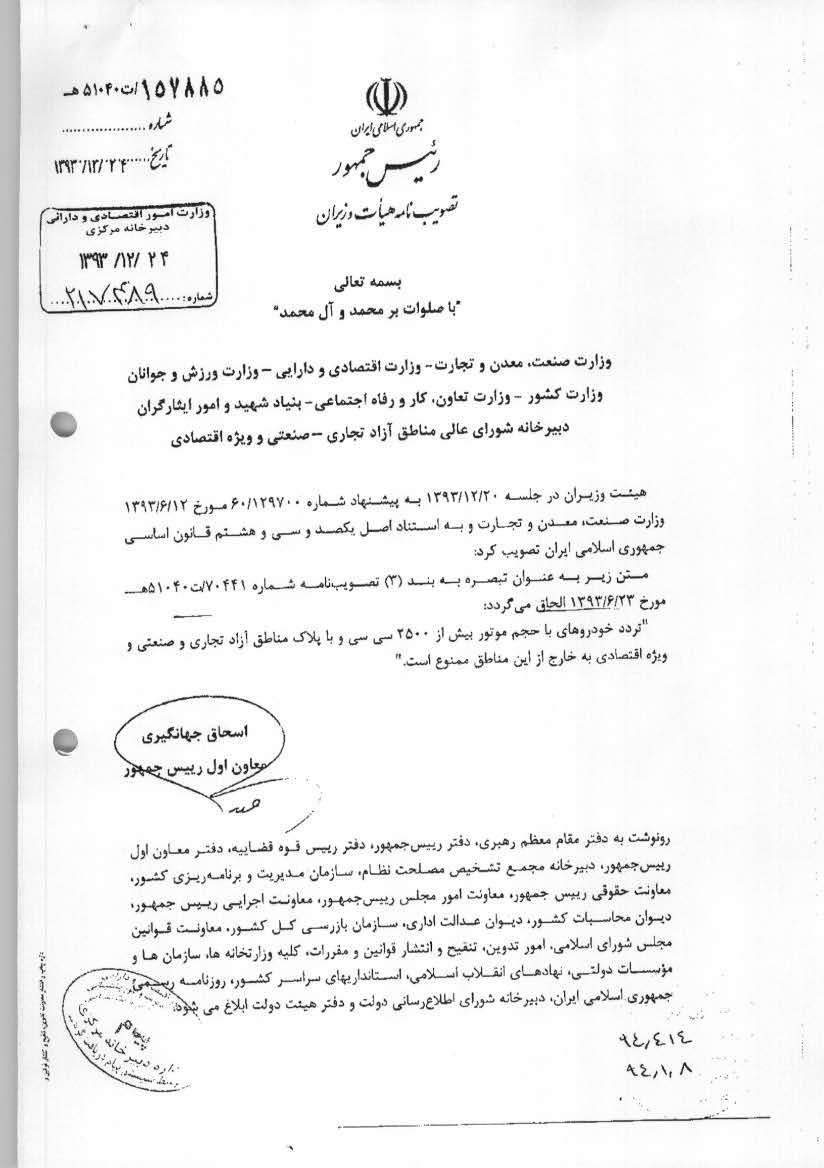 ۱۵۷۸۸۵/ت۵۱۰۴۰هـ
شماره ....................
تاریخ ۱۳۹۳/۱۲/۲۴
جمهوری اسلامی ایران
رئیس جمهور
تصویب نامه هیأت وزیران
وزارت امور اقتصادی و دارائی
دبیرخانه مرکزی
۱۳۹۳/۱۲/۲۴
شماره: ۲۱۷۴۸۹
بسمه تعالی
"با صلوات بر محمد و آل محمد"
وزارت صنعت، معدن و تجارت- وزارت اقتصادی و دارایی – وزارت ورزش و جوانان
وزارت کشور – وزارت تعاون، کار و رفاه اجتماعی- بنیاد شهید و امور ایثارگران
دبیرخانه شورای عالی مناطق آزاد تجاری – صنعتی و ویژه اقتصادی
هیئت وزیران در جلسه ۱۳۹۳/۱۲/۲۰ به پیشنهاد شماره ۶۰/۱۲۹۷۰۰ مورخ ۱۳۹۳/۶/۱۲
وزارت صنعت، معدن و تجارت و به استناد اصل یکصد و سی و هشتم قانون اساسی
جمهوری اسلامی ایران تصویب کرد:
متن زیر به عنوان تبصره به بند (۳) تصویب‌نامه شماره ۷۰۴۴۱/ت۵۱۰۴۰هـ
مورخ ۱۳۹۳/۶/۲۳ الحاق می‌گردد:
"تردد خودروهای با حجم موتور بیش از ۲۵۰۰ سی سی و با پلاک مناطق آزاد تجاری و صنعتی و
ویژه اقتصادی به خارج از این مناطق ممنوع است."
اسحاق جهانگیری
معاون اول رییس جمهور
رونوشت به دفتر مقام معظم رهبری، دفتر رییس‌جمهور، دفتر رییس قوه قضاییه، دفتر معاون اول
رییس‌جمهور، دبیرخانه مجمع تشخیص مصلحت نظام، سازمان مدیریت و برنامه‌ریزی کشور،
معاونت حقوقی رییس جمهور، معاونت امور مجلس رییس‌جمهور، معاونت اجرایی رییس جمهور،
دیوان محاسبات کشور، دیوان عدالت اداری، سازمان بازرسی کل کشور، معاونت قوانین
مجلس شورای اسلامی، امور تدوین، تنقیح و انتشار قوانین و مقررات، کلیه وزارتخانه ها، سازمان ها و
مؤسسات دولتی، نهادهای انقلاب اسلامی، استانداریهای سراسر کشور، روزنامه رسمی
جمهوری اسلامی ایران، دبیرخانه شورای اطلاع‌رسانی دولت و دفتر هیئت دولت ابلاغ می شود.
پیام
اداره دبیرخانه مرکزی
۹۴٫۴٫۱۴
۹۴٫۱٫۸